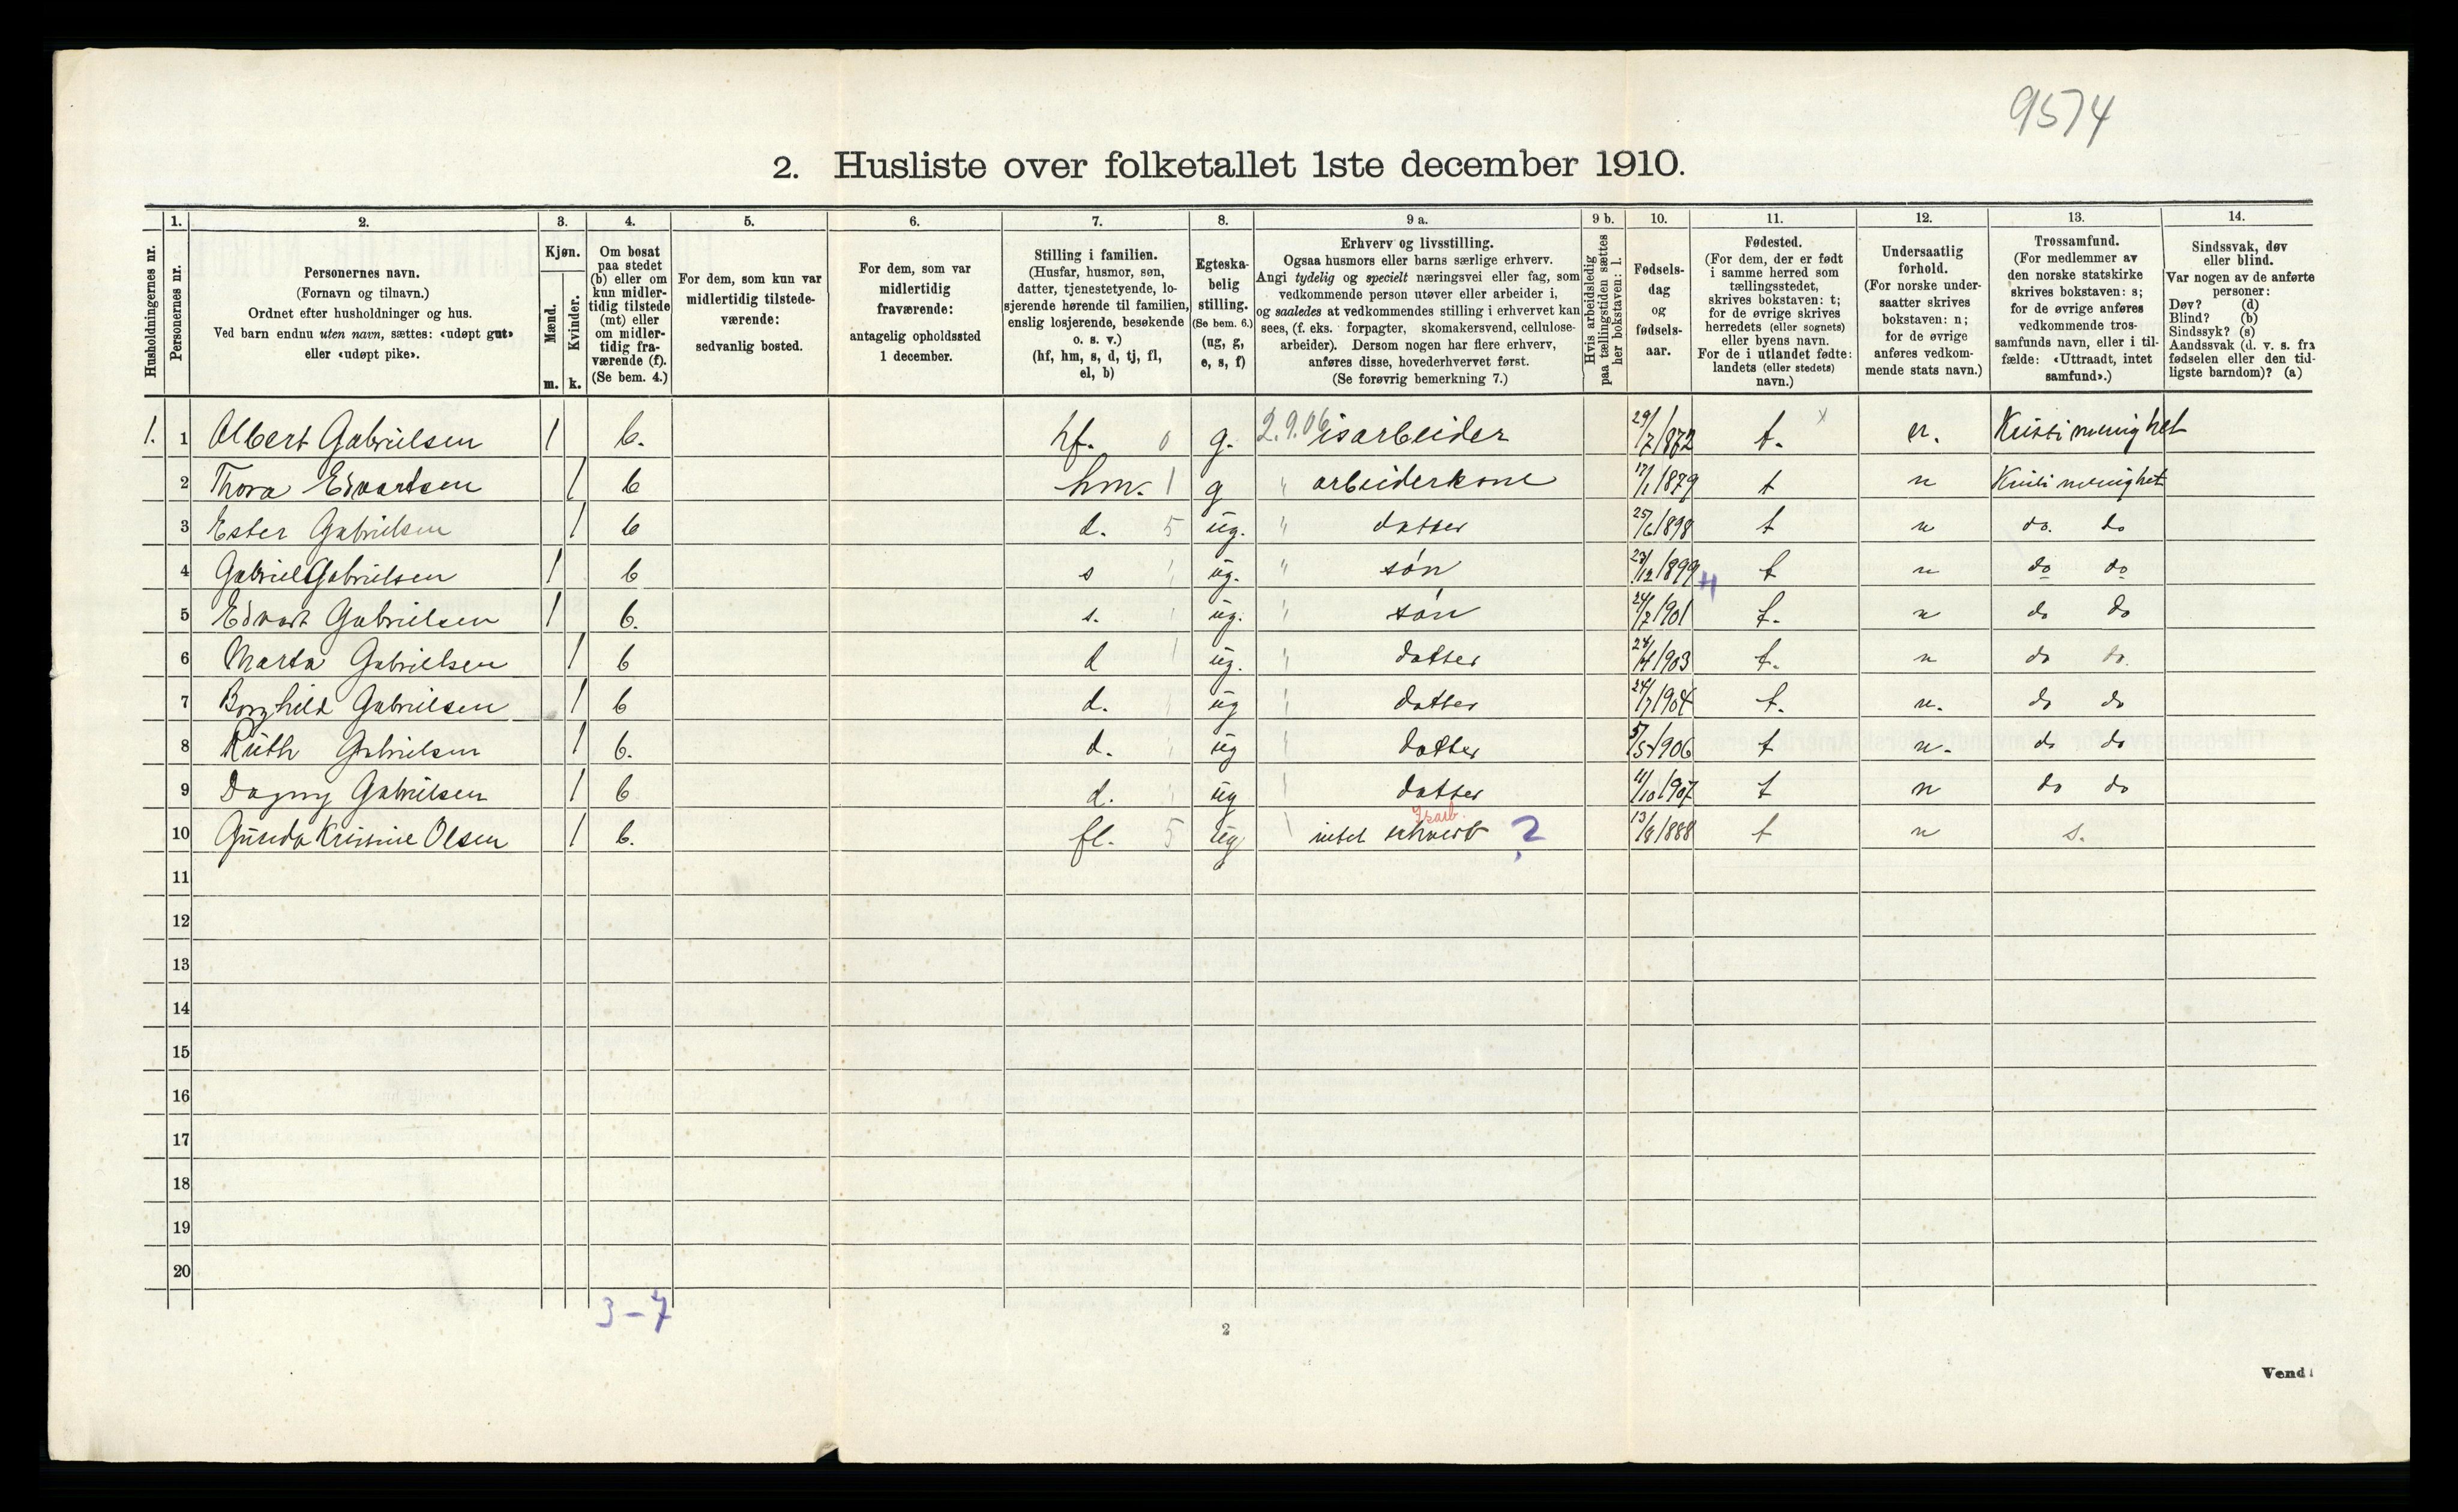 9574
2. Husliste over folketallet 1ste december 1910.
Husholdningernes nr.
1. Personernes nr.
2. Personernes navn.
(Fornavn og tilnavn.)
Ordnet efter husholdninger og hus.
Ved barn endnu uten navn, sættes: «udøpt gut»
eller «udøpt pike».
3. Kjøn.
Mænd. m.
Kvinder. k.
4. Om bosat
paa stedet
(b) eller om
kun midler-
tidig tilstede
(mt) eller
om midler-
tidig fra-
værende (f).
(Se bem. 4.)
5. For dem, som kun var
midlertidig tilstede-
værende:
sedvanlig bosted.
6. For dem, som var
midlertidig
fraværende:
antagelig opholdssted
1 december.
7. Stilling i familien.
(Husfar, husmor, søn,
datter, tjenestetyende, lo-
sjerende hørende til familien,
enslig losjerende, besøkende
o. s. v.)
(hf, hm, s, d, tj, fl,
el, b)
8. Egteska-
belig
stilling.
(Se bem. 6.)
(ug, g,
e, s, f)
9 a. Erhverv og livsstilling.
Ogsaa husmors eller barns særlige erhverv.
Angi tydelig og specielt næringsvei eller fag, som
vedkommende person utøver eller arbeider i,
og saaledes at vedkommendes stilling i erhvervet kan
sees, (f. eks. forpagter, skomakersvend, cellulose-
arbeider). Dersom nogen har flere erhverv,
anføres disse, hovederhvervet først.
(Se forøvrig bemerkning 7.)
9 b. Hvis arbeidsledig
paa tællingstiden sættes
her bokstaven: l.
10. Fødsels-
dag
og
fødsels-
aar.
11. Fødested.
(For dem, der er født
i samme herred som
tællingsstedet,
skrives bokstaven: t;
for de øvrige skrives
herredets (eller sognets)
eller byens navn.
For de i utlandet fødte:
landets (eller stedets)
navn.)
12. Undersaatlig
forhold.
(For norske under-
saatter skrives
bokstaven: n;
for de øvrige
anføres vedkom-
mende stats navn.)
13. Trossamfund.
(For medlemmer av
den norske statskirke
skrives bokstaven: s;
for de øvrige anføres
vedkommende tros-
samfunds navn, eller i til-
fælde: «Uttraadt, intet
samfund».)
14. Sindssvak, døv
eller blind.
Var nogen av de anførte
personer:
Døv? (d)
Blind? (b)
Sindssyk? (s)
Aandssvak (d. v. s. fra
fødselen eller den tid-
ligste barndom)? (a)
1. 1 Albert Gabrielsen 1 b. hf. 0 g. 2.9.06 isarbeider 29/7/872 t. x n. Kristi menighet
2 Thora Edvartsen 1 b hm. 1 g " arbeiderkone 17/1 1879 t n Kristi menighet
3 Ester Gabrielsen 1 b d. 5 ug. " datter 25/6 1898 t n do. do
4 Gabriel Gabrielsen 1 b s ug. " søn 23/12 1899 t n do do
5 Edvart Gabrielsen 1 b. s. ug. " søn 24/7 1901 t. n do do
6 Marta Gabrielsen 1 b d ug. " datter 24/4 1903 t. n do do.
7 Borghild Gabrielsen 1 b d. ug datter 24/7 1904 t. n. do do
8 Ruth Gabrielsen 1 b. d. ug datter 5/5 1906 t n. do do
9 Dagny Gabrielsen 1 b d. ug datter 11/10 1907 t n do do
10 Gunda Kristine Olsen 1 b. fl. 5 ug intet erhverb Isarb. ? 13/8 1888 t n s.
11
12
13
14
15
16
17
18
19
20
3-7
2
Vend!